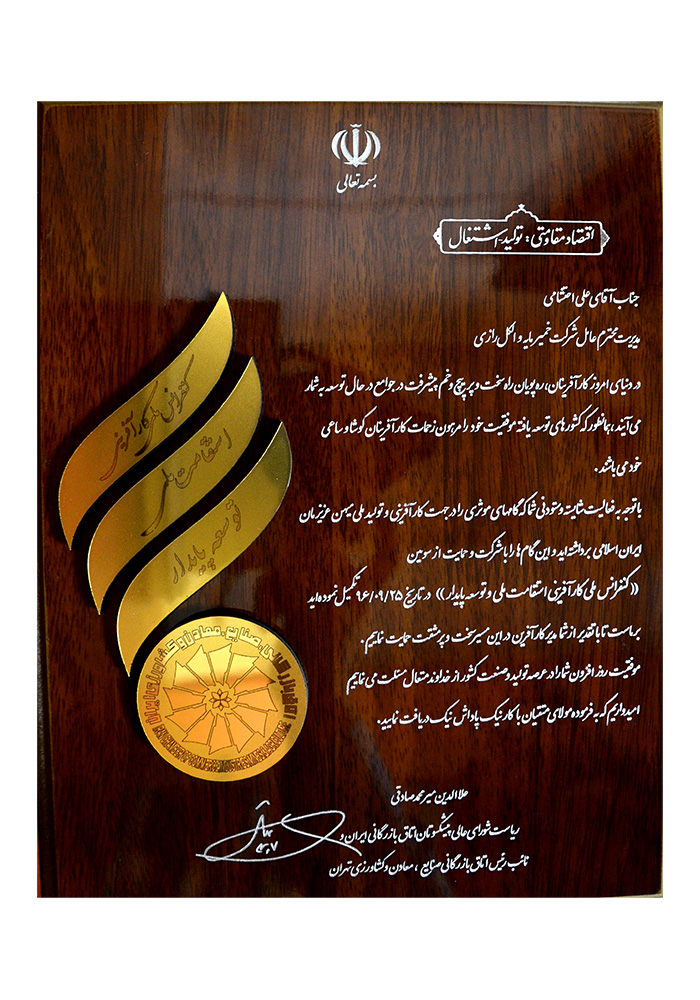 بسمه تعالی
اقتصاد مقاومتی: تولید-اشتغال
جناب آقای علی احتشامی
مدیریت محترم عامل شرکت خمیرمایه و الکل رازی
در دنیای امروز کارآفرینان، ره پویان راه سخت و پر پیچ و خم پیشرفت در جوامع در حال توسعه به شمار
می آیند، همانطور که کشورهای توسعه یافته موفقیت خود را مرهون زحمات کارآفرینان کوشا و ساعی
خود می باشند.
با توجه به فعالیت شایسته و ستودنی شما که گامهای موثری را در جهت کارآفرینی و تولید ملی میهن عزیزمان
ایران اسلامی برداشته اید و این گام ها را با شرکت و حمایت از سومین
«کنفرانس ملی کارآفرینی استقامت ملی و توسعه پایدار» در تاریخ ۹۶/۰۹/۲۵ تکمیل نموده اید
بر ماست تا با تقدیر از شما مدیر کارآفرین در این مسیر سخت و پر مشقت حمایت نماییم.
موفقیت روز افزون شما را در عرصه تولید و صنعت کشور از خداوند متعال مسئلت می نماییم
امیدواریم که به فرموده مولای متقیان با کار نیک پاداش نیک دریافت نمایید.
کنفرانس ملی کارآفرینی
استقامت ملی
توسعه پایدار
اتاق بازرگانی، صنایع، معادن و کشاورزی ایران
علاالدین میرمحمدصادقی
ریاست شورای عالی پیشکسوتان اتاق بازرگانی ایران و
نائب رئیس اتاق بازرگانی صنایع، معادن و کشاورزی تهران